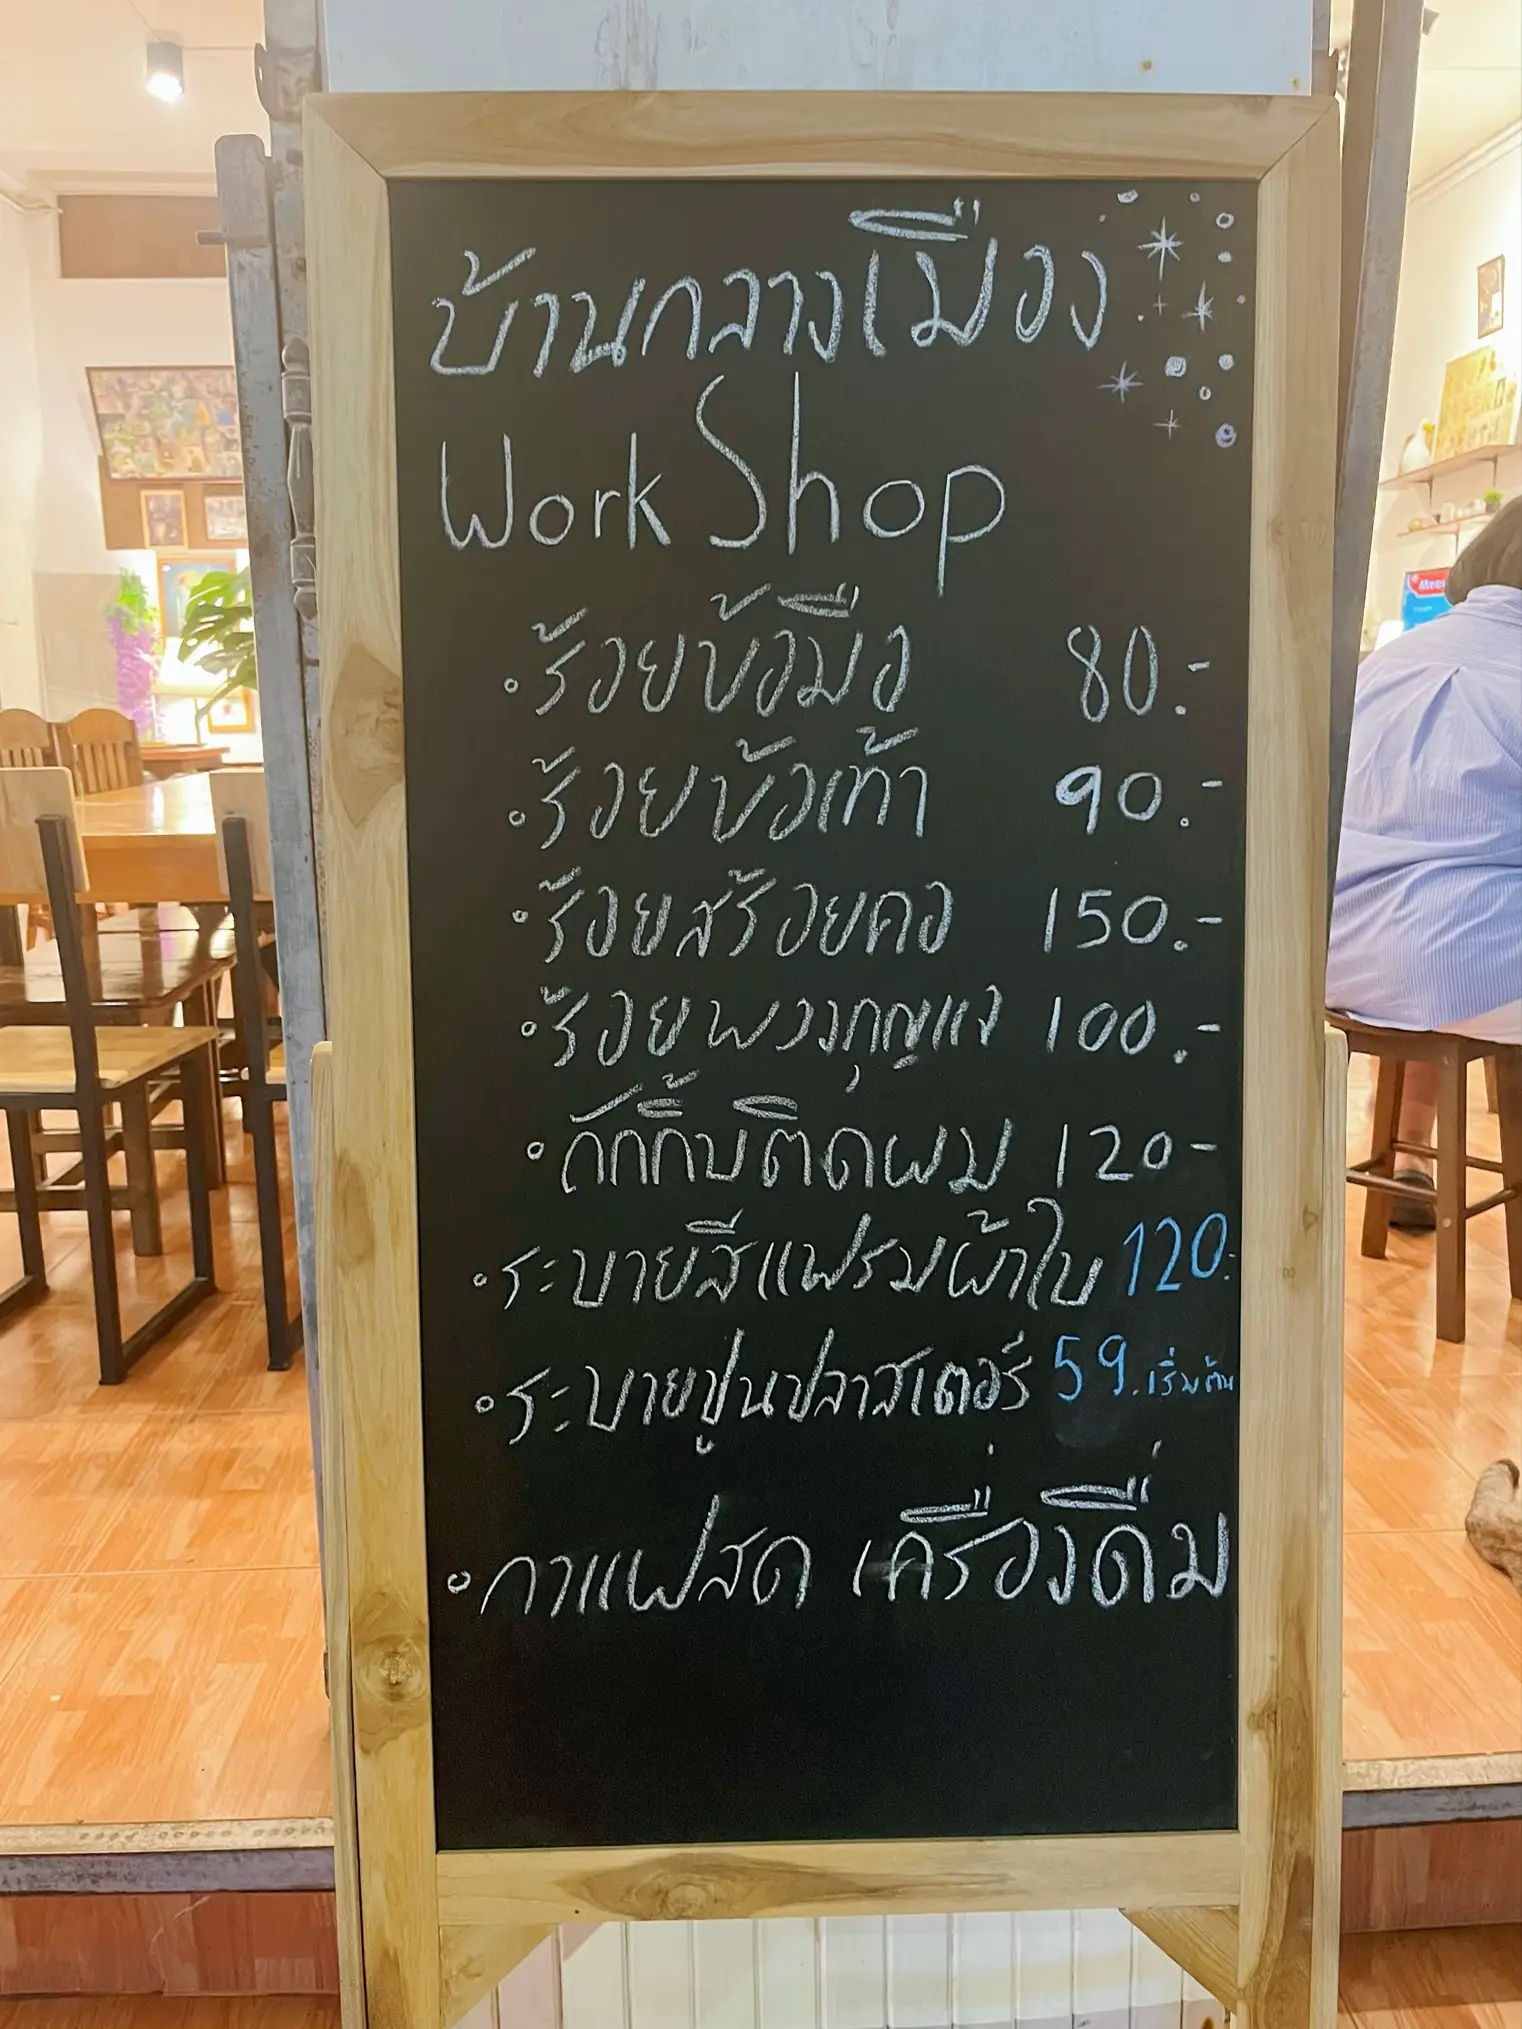 บ้านกลางเมือง
Work Shop
• ร้อยข้อมือ 80.-
• ร้อยข้อเท้า 90.-
• ร้อยสร้อยคอ 150.-
• ร้อยพวงกุญแจ 100.-
• ถักกิ๊บติดผม 120-
• ระบายสีแฟรมผ้าใบ 120.-
• ระบายปูนปลาสเตอร์ 59.เริ่มต้น
• กาแฟสด เครื่องดื่ม